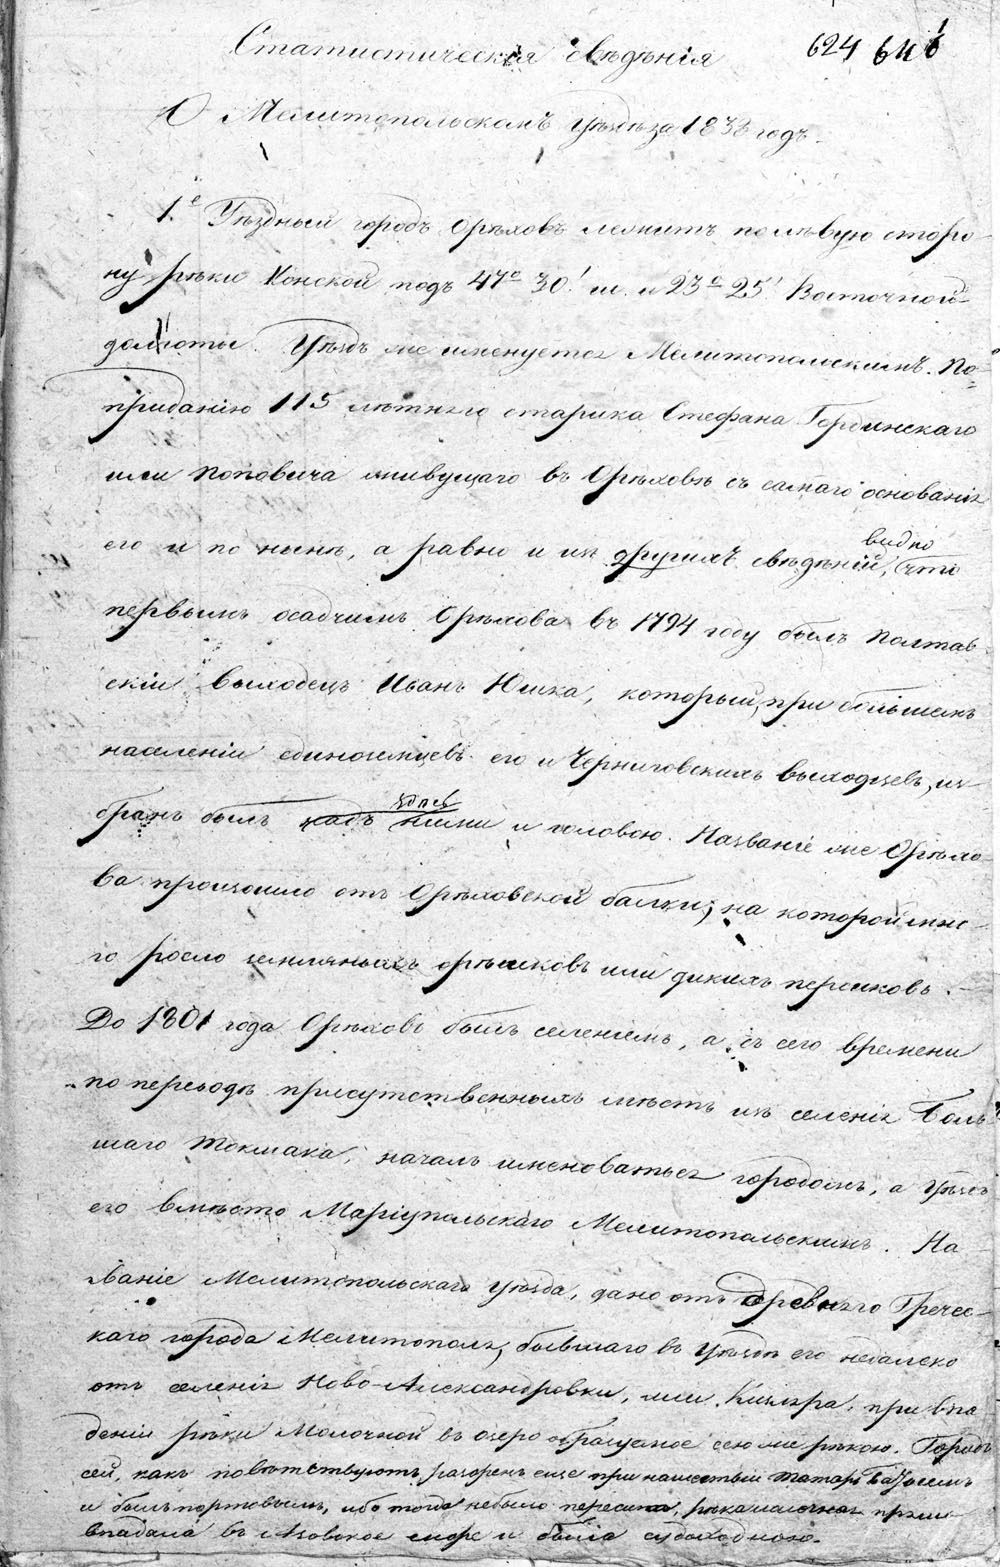 Статистическія свѣдѣнія 624
О Мелитопольскомъ уѣздѣ за 1838 годъ.
1.е Уѣздный городъ Орѣховъ лежитъ по лѣвую сторо-
ну рѣки Конской подъ 47° 30' ш. и 23° 25' Восточной
долготы. Уѣздъ же именуется Мелитопольскимъ. По
приданію 115 лѣтняго старика Стефана Гординскаго
или Поповича живущаго въ Орѣховѣ съ самаго основанія
его и по нынѣ, а равно и изъ другихъ свѣдѣній, видно что
первымъ осадчимъ Орѣхова въ 1794 году былъ Полтав
скій выходецъ Иванъ Юшка, который, при большемъ
населеніи единоземцевъ его и Черниговскихъ выходцевъ, из-
бранъ былъ надъ ними здѣсь и головою. Названіе же Орѣхо-
ва произошло отъ Орѣховской балки, на которой мно-
го росло земляныхъ орѣшковъ или дикихъ персиковъ.
До 1801 года Орѣховъ былъ селеніемъ, а съ сего времени
по переводѣ присутственныхъ мѣстъ изъ селенія Боль
шаго Токмака, началъ именоваться городомъ, а уѣздъ
его вмѣсто Маріупольскаго Мелитопольскимъ. На-
званіе Мелитопольскаго уѣзда, дано отъ древняго Гречес-
каго города Мелитополя, бывшаго въ уѣздѣ его недалеко
отъ селенія Ново-Александровки, или Кизьяра, при впа
деніи рѣки Молочной въ озеро образуемое сею же рѣкою. Городъ
сей, какъ повѣтствуютъ, разоренъ еще при нашествіи татаръ Батуемъ
и былъ портовымъ, ибо тогда небыло пересыпи, рѣка молочная прямо
впадала въ Азовское море и была судоходною.